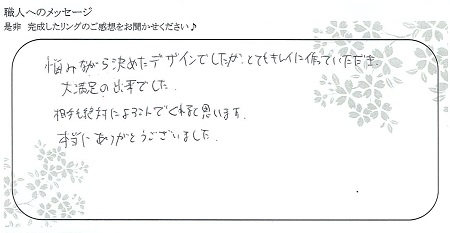 職人へのメッセージ
是非 完成したリングのご感想をお聞かせください♪
悩みながら決めたデザインでしたが、とてもキレイに作っていただき
大満足の出来でした。
相手も絶対によろこんでくれると思います。
本当にありがとうございました。